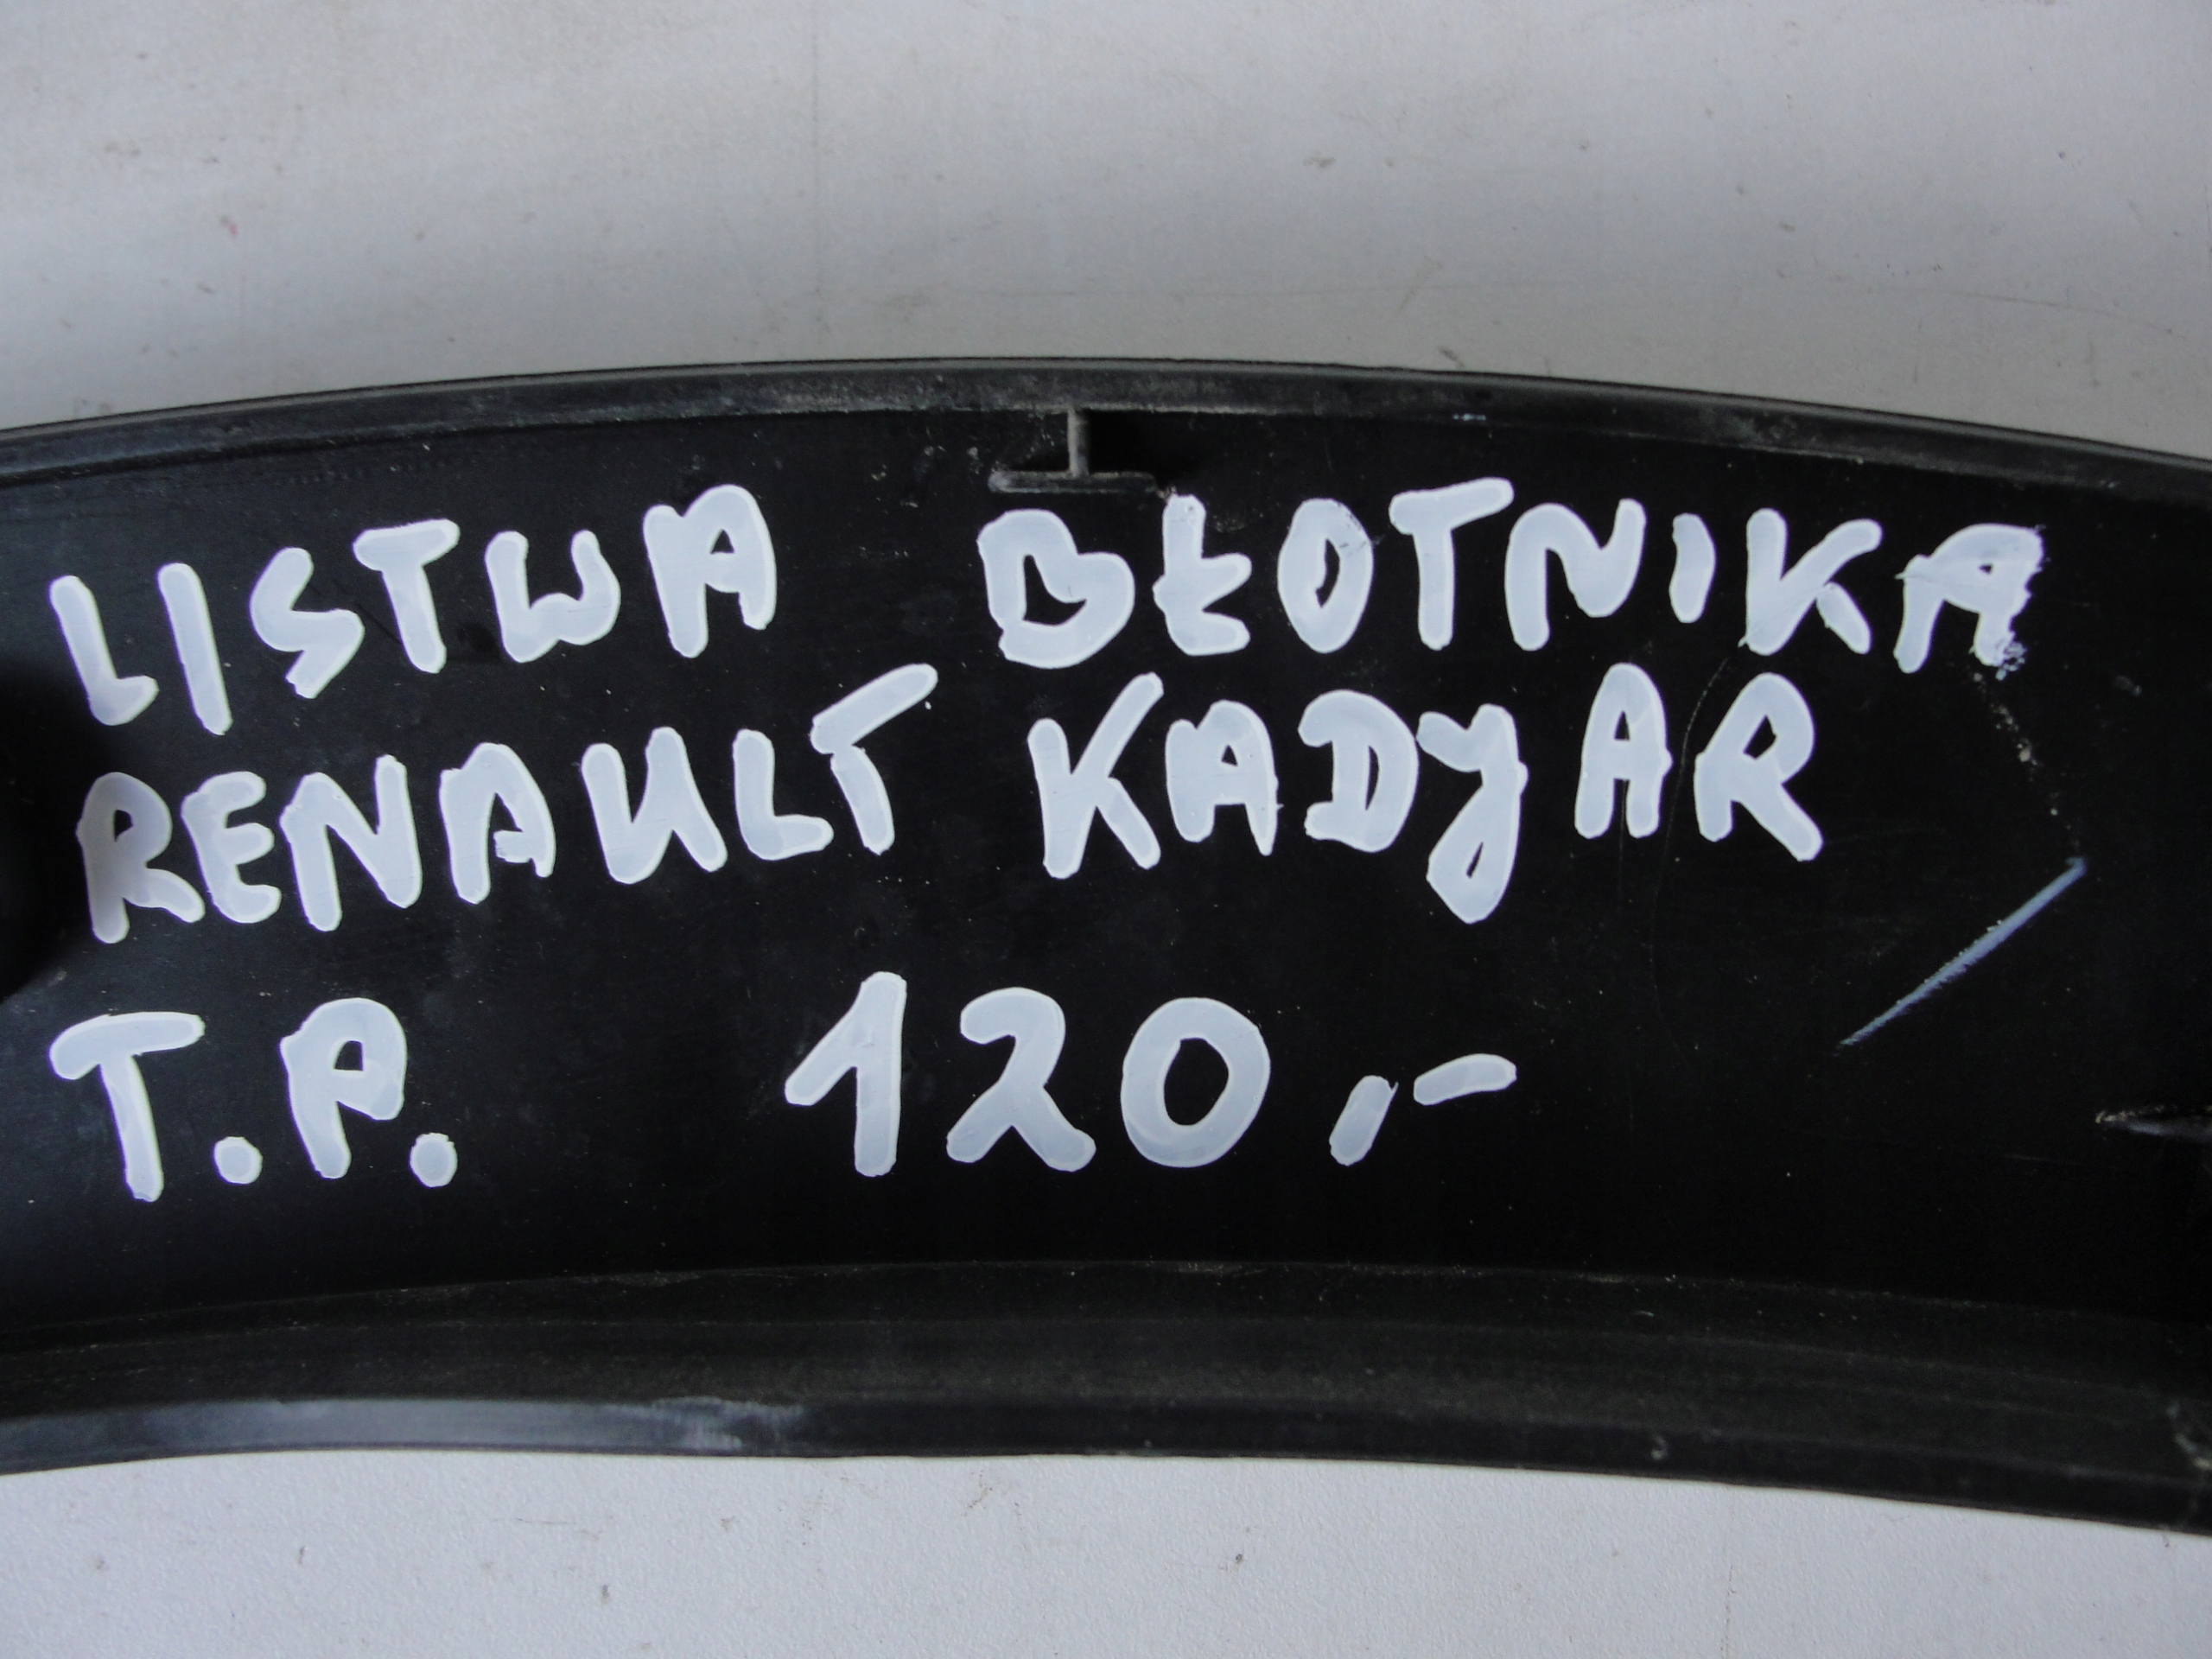 LISTWA BŁOTNIKA
RENAULT KADYAR
T.P. 120,-